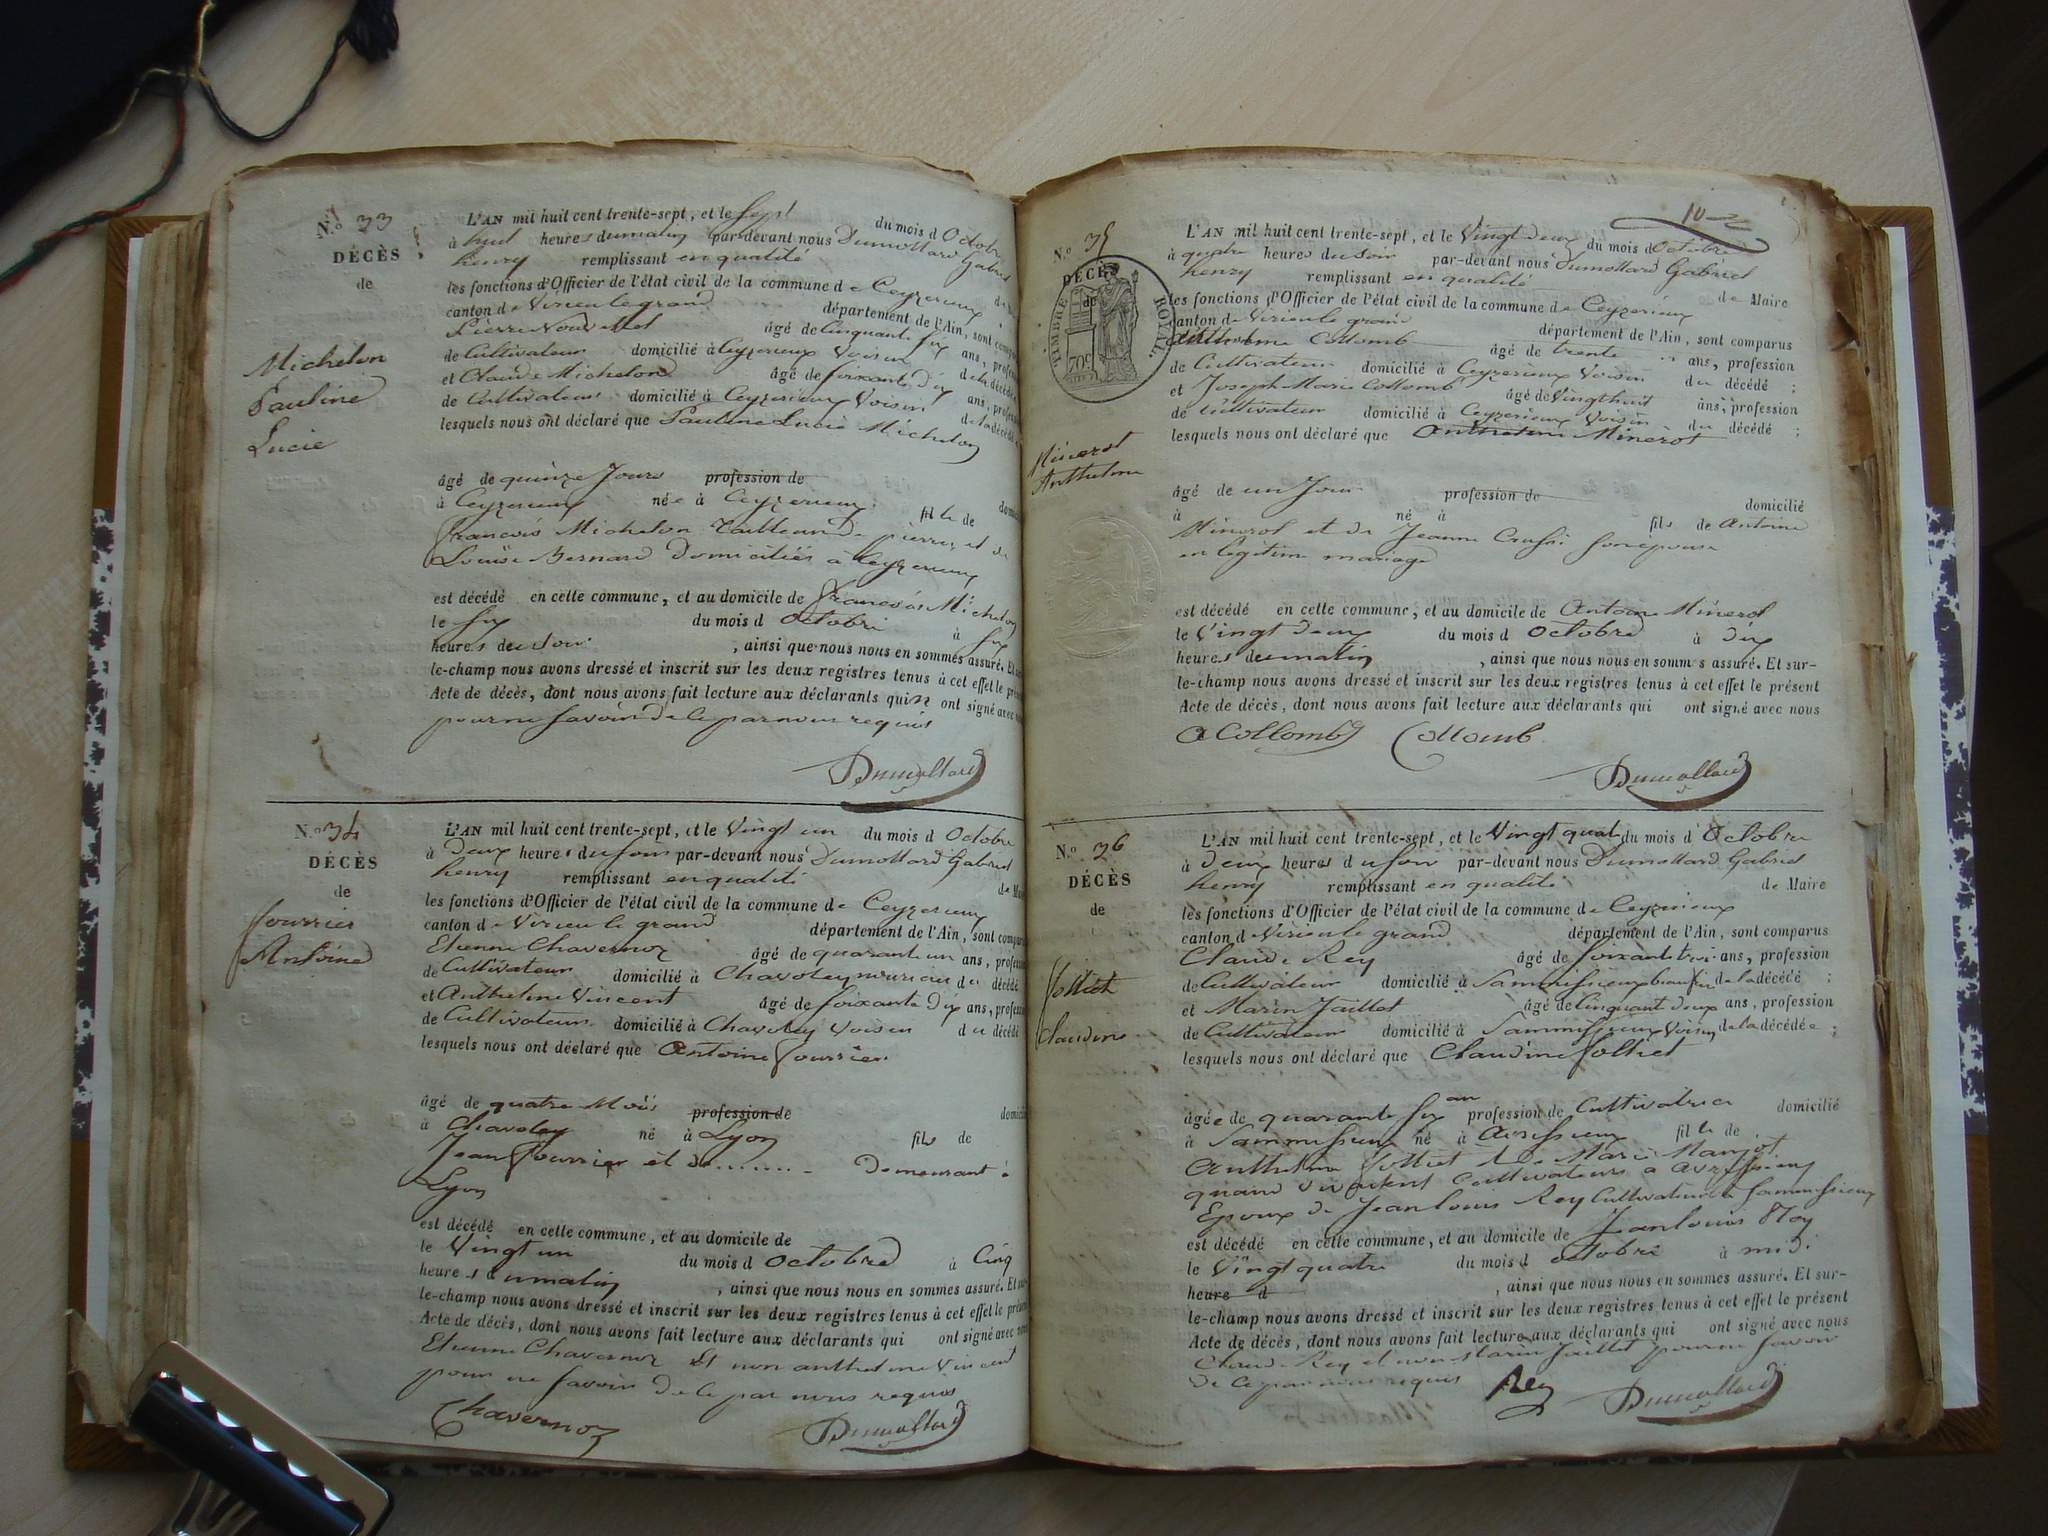 N.o 33
DÉCÈS
de
Michelon
Pauline
Lucie
L'AN mil huit cent trente-sept, et le sept du mois d Octobre
à huit heures du matin par-devant nous Dumollard Gabriel
henry remplissant en qualité
les fonctions d'Officier de l'état civil de la commune de Ceyzerieux
canton de Virieu le grand département de l'Ain, sont comparus
Pierre âgé de Cinquante six ans, profession
de Cultivateur domicilié à Ceyzerieux Voisin de la décédée
et Claude Michelon âgé de soixante dix ans, profession
de Cultivateur domicilié à Ceyzerieux Voisin de la décédée
lesquels nous ont déclaré que Pauline Lucie Michelon
âgé de quinze Jours profession de
à Ceyzerieux née à Ceyzerieux fille de
francois Michelon Tailleur de pierres et de
Louise Bernard Domiciliés à Ceyzerieux
est décédé en cette commune, et au domicile de francois Michelon
le six du mois d Octobre à six
heures du soir, ainsi que nous nous en sommes assuré. Et sur-
le-champ nous avons dressé et inscrit sur les deux registres tenus à cet effet le présent
Acte de décès, dont nous avons fait lecture aux déclarants qui n ont signé avec nous
pour ne savoir de ce par nous requis
Dumollard
N.o 34
DÉCÈS
de
fourrier
Antoine
L'AN mil huit cent trente-sept, et le Vingt un du mois d Octobre
à deux heures du soir par-devant nous Dumollard Gabriel
henry remplissant en qualité de Maire
les fonctions d'Officier de l'état civil de la commune de Ceyzerieux
canton de Virieu le grand département de l'Ain, sont comparus
Etienne Chavernoz âgé de quarante un ans, profession
de Cultivateur domicilié à Chavoley du décédé
et Anthelme Vincent âgé de soixante dix ans, profession
de Cultivateur domicilié à Chavoley Voisin du décédé
lesquels nous ont déclaré que Antoine fourrier
âgé de quatre Mois profession de
à Chavoley né à Lyon fils de
Jean fourrier et de ........ Demeurant à
Lyon
est décédé en cette commune, et au domicile de
le Vingt un du mois d Octobre à Cinq
heures du matin, ainsi que nous nous en sommes assuré. Et sur-
le-champ nous avons dressé et inscrit sur les deux registres tenus à cet effet le présent
Acte de décès, dont nous avons fait lecture aux déclarants qui ont signé avec nous
Etienne Chavernoz Et non anthelme Vincent
pour ne savoir de ce par nous requis
Chavernoz Dumollard
10
N.o 35
DÉCÈS
de
TIMBRE ROYAL.
70c
Minerot
Anthelme
L'AN mil huit cent trente-sept, et le Vingt deux du mois d Octobre
à quatre heures du soir par-devant nous Dumollard Gabriel
henry remplissant en qualité de Maire
les fonctions d'Officier de l'état civil de la commune de Ceyzerieux
canton de Virieu le grand département de l'Ain, sont comparus
Anthelme Collomb âgé de trente ans, profession
de Cultivateur domicilié à Ceyzerieux Voisin du décédé ;
et Joseph Marie Collomb âgé de Vingt huit ans, profession
de Cultivateur domicilié à Ceyzerieux Voisin du décédé ;
lesquels nous ont déclaré que Anthelme Minerot
âgé de un Jour profession de domicilié
à né à fils de Antoine
Minerot et de Jeanne son épouse
en legitime mariage
est décédé en cette commune, et au domicile de Antoine Minerot
le Vingt deux du mois d Octobre à dix
heures du matin, ainsi que nous nous en sommes assuré. Et sur-
le-champ nous avons dressé et inscrit sur les deux registres tenus à cet effet le présent
Acte de décès, dont nous avons fait lecture aux déclarants qui ont signé avec nous
A Collomb Collomb
Dumollard
N.o 36
DÉCÈS
de
Jolliet
Claudine
L'AN mil huit cent trente-sept, et le Vingt quat du mois d Octobre
à deux heures du soir par-devant nous Dumollard Gabriel
henry remplissant en qualité de Maire
les fonctions d'Officier de l'état civil de la commune de Ceyzerieux
canton de Virieu le grand département de l'Ain, sont comparus
Claude Rey âgé de soixante troi ans, profession
de Cultivateur domicilié à Sammissieux de la décédé ;
et Marin Jaillet âgé de Cinquant deux ans, profession
de Cultivateur domicilié à Sammissieux Voisin de la décédée ;
lesquels nous ont déclaré que Claudine Jolliet
âgée de quarante six an profession de Cultivatrice domicilié
à Sammissieux né à fille de
Anthelme Jolliet & de Marie
quand vivaient Cultivateurs à
Epoux de Jean louis Rey Cultivateur à Sammissieux
est décédé en cette commune, et au domicile de Jean louis Rey
le Vingt quatre du mois d octobre à midi
heure d, ainsi que nous nous en sommes assuré. Et sur-
le-champ nous avons dressé et inscrit sur les deux registres tenus à cet effet le présent
Acte de décès, dont nous avons fait lecture aux déclarants qui ont signé avec nous
Claude Rey et non Marin Jaillet pour ne savoir
de ce par nous requis Rey Dumollard